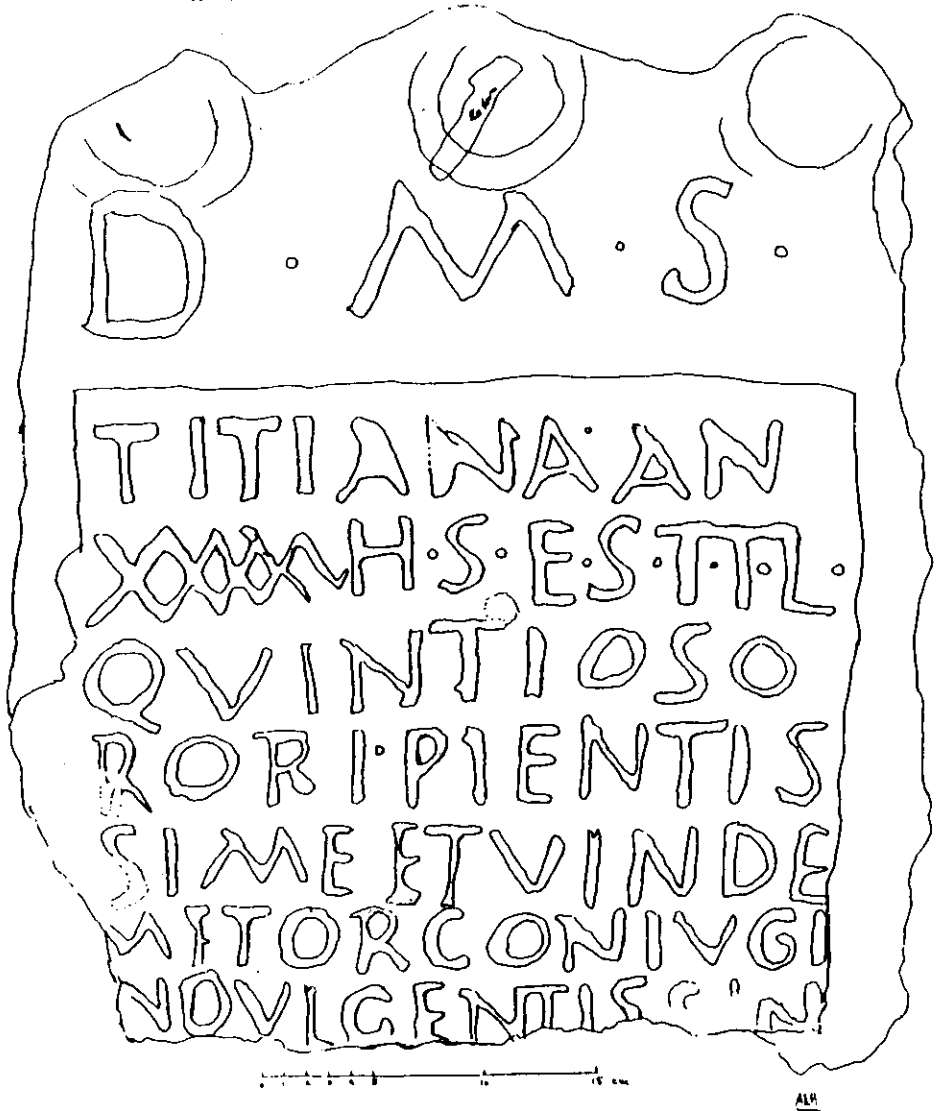 D · M · S ·
TITIANA · AN
XXXXIV H · S · E · S · T · T · L ·
QVINTIOSO
RORI · PIENTIS
SIME ET VINDE
MITOR CONIVGI
NOVI GENTIS
15 cm
ALH